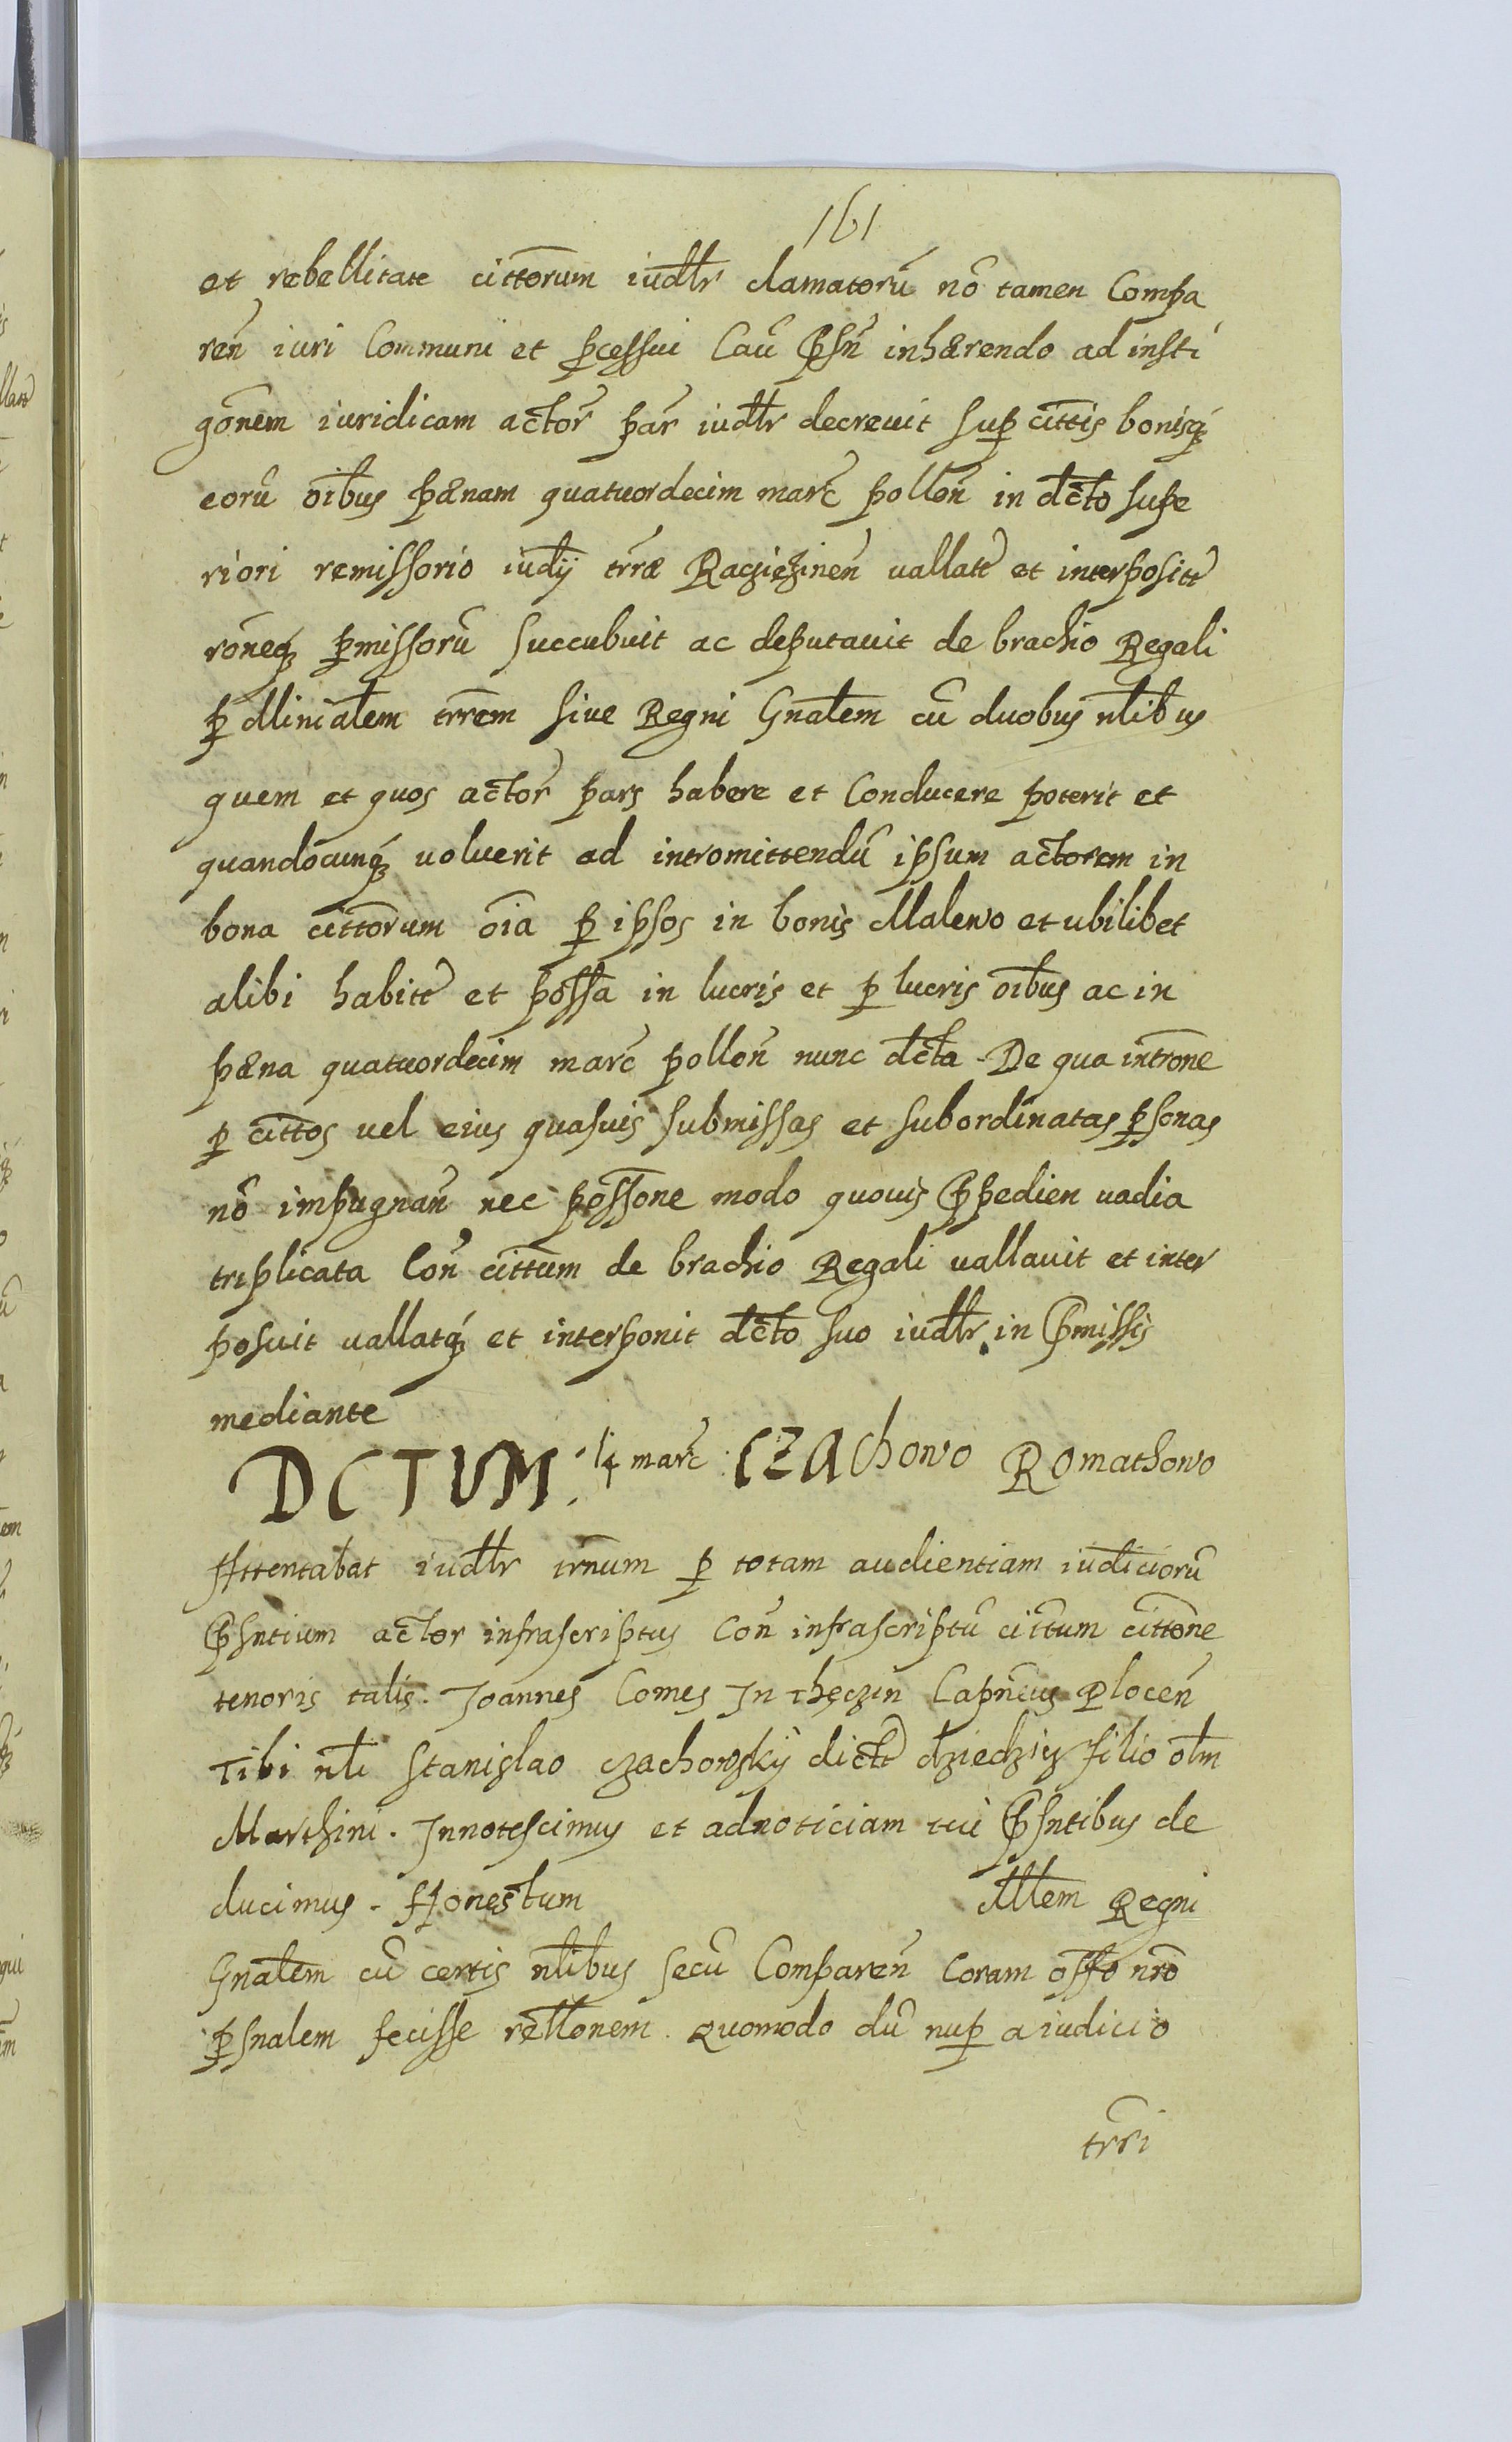 161
et rebellitate cittorum iudltr clamatorũ nõ tamen Compa
reñ iuri Communi et pcessui Cau͂ p̃sñ inhærendo ad insti
gõnem iuridicam actor͂ par͂ iudltr decreuit sup cittis bonisq́
eorũ oĩbus pænam quatuordecim marc͂ polloñ in dcto supe
riori remissorio iudij trræ Racziezineñ vallate͂ et interposite͂
rõneq́ pmissorũ succubuit ac deputauit de brachio Regali
p Miniãlem trrẽm siue Regni Gnãlem cũ duobus nlibus
quem et quos actor͂ pars habere et Conducere poterit et
quandocunq́ voluerit ad intromittendũ ipsum actorem in
bona cittorum oĩa p ipsos in bonis Malewo et ubilibet
alibi habite͂ et põssa in lucris et p lucris oĩbus ac in
pæna quatuordecim marc͂ polloñ nunc dcta. De qua intrõne
p cittos vel eius quasuis submissas et subordinatas psonas
nõ impugnañ nec põssone modo quouis p̃pedien vadia
triplicata Coñ cittum de brachio Regali vallauit et inter
posuit vallatq́ et interponit dcto suo iudltr in p̃missis
mediante
DCTUM. 14 marc͂ CZAchowo Romathowo
Attentabat iudltr trñum p totam audientiam iudiciorũ
p̃sntium actor infrascriptus Coñ infrascriptũ cittum cittõne
tenoris talis. Joannes Comes In Theczin Capñeus Ploceñ
Tibi nli Stanislao Czachowskÿ dicte͂ dziedzicz filio olm
Marthini. Innotescimus et adnoticiam tui p̃sntibus de
ducimus. Honestum Mltem Regni
Gnãlem cũ certis nlibus secũ Compareñ Coram offo nrõ
psnalem fecisse reltonem. Quomodo dũ nup a iudicio
trri